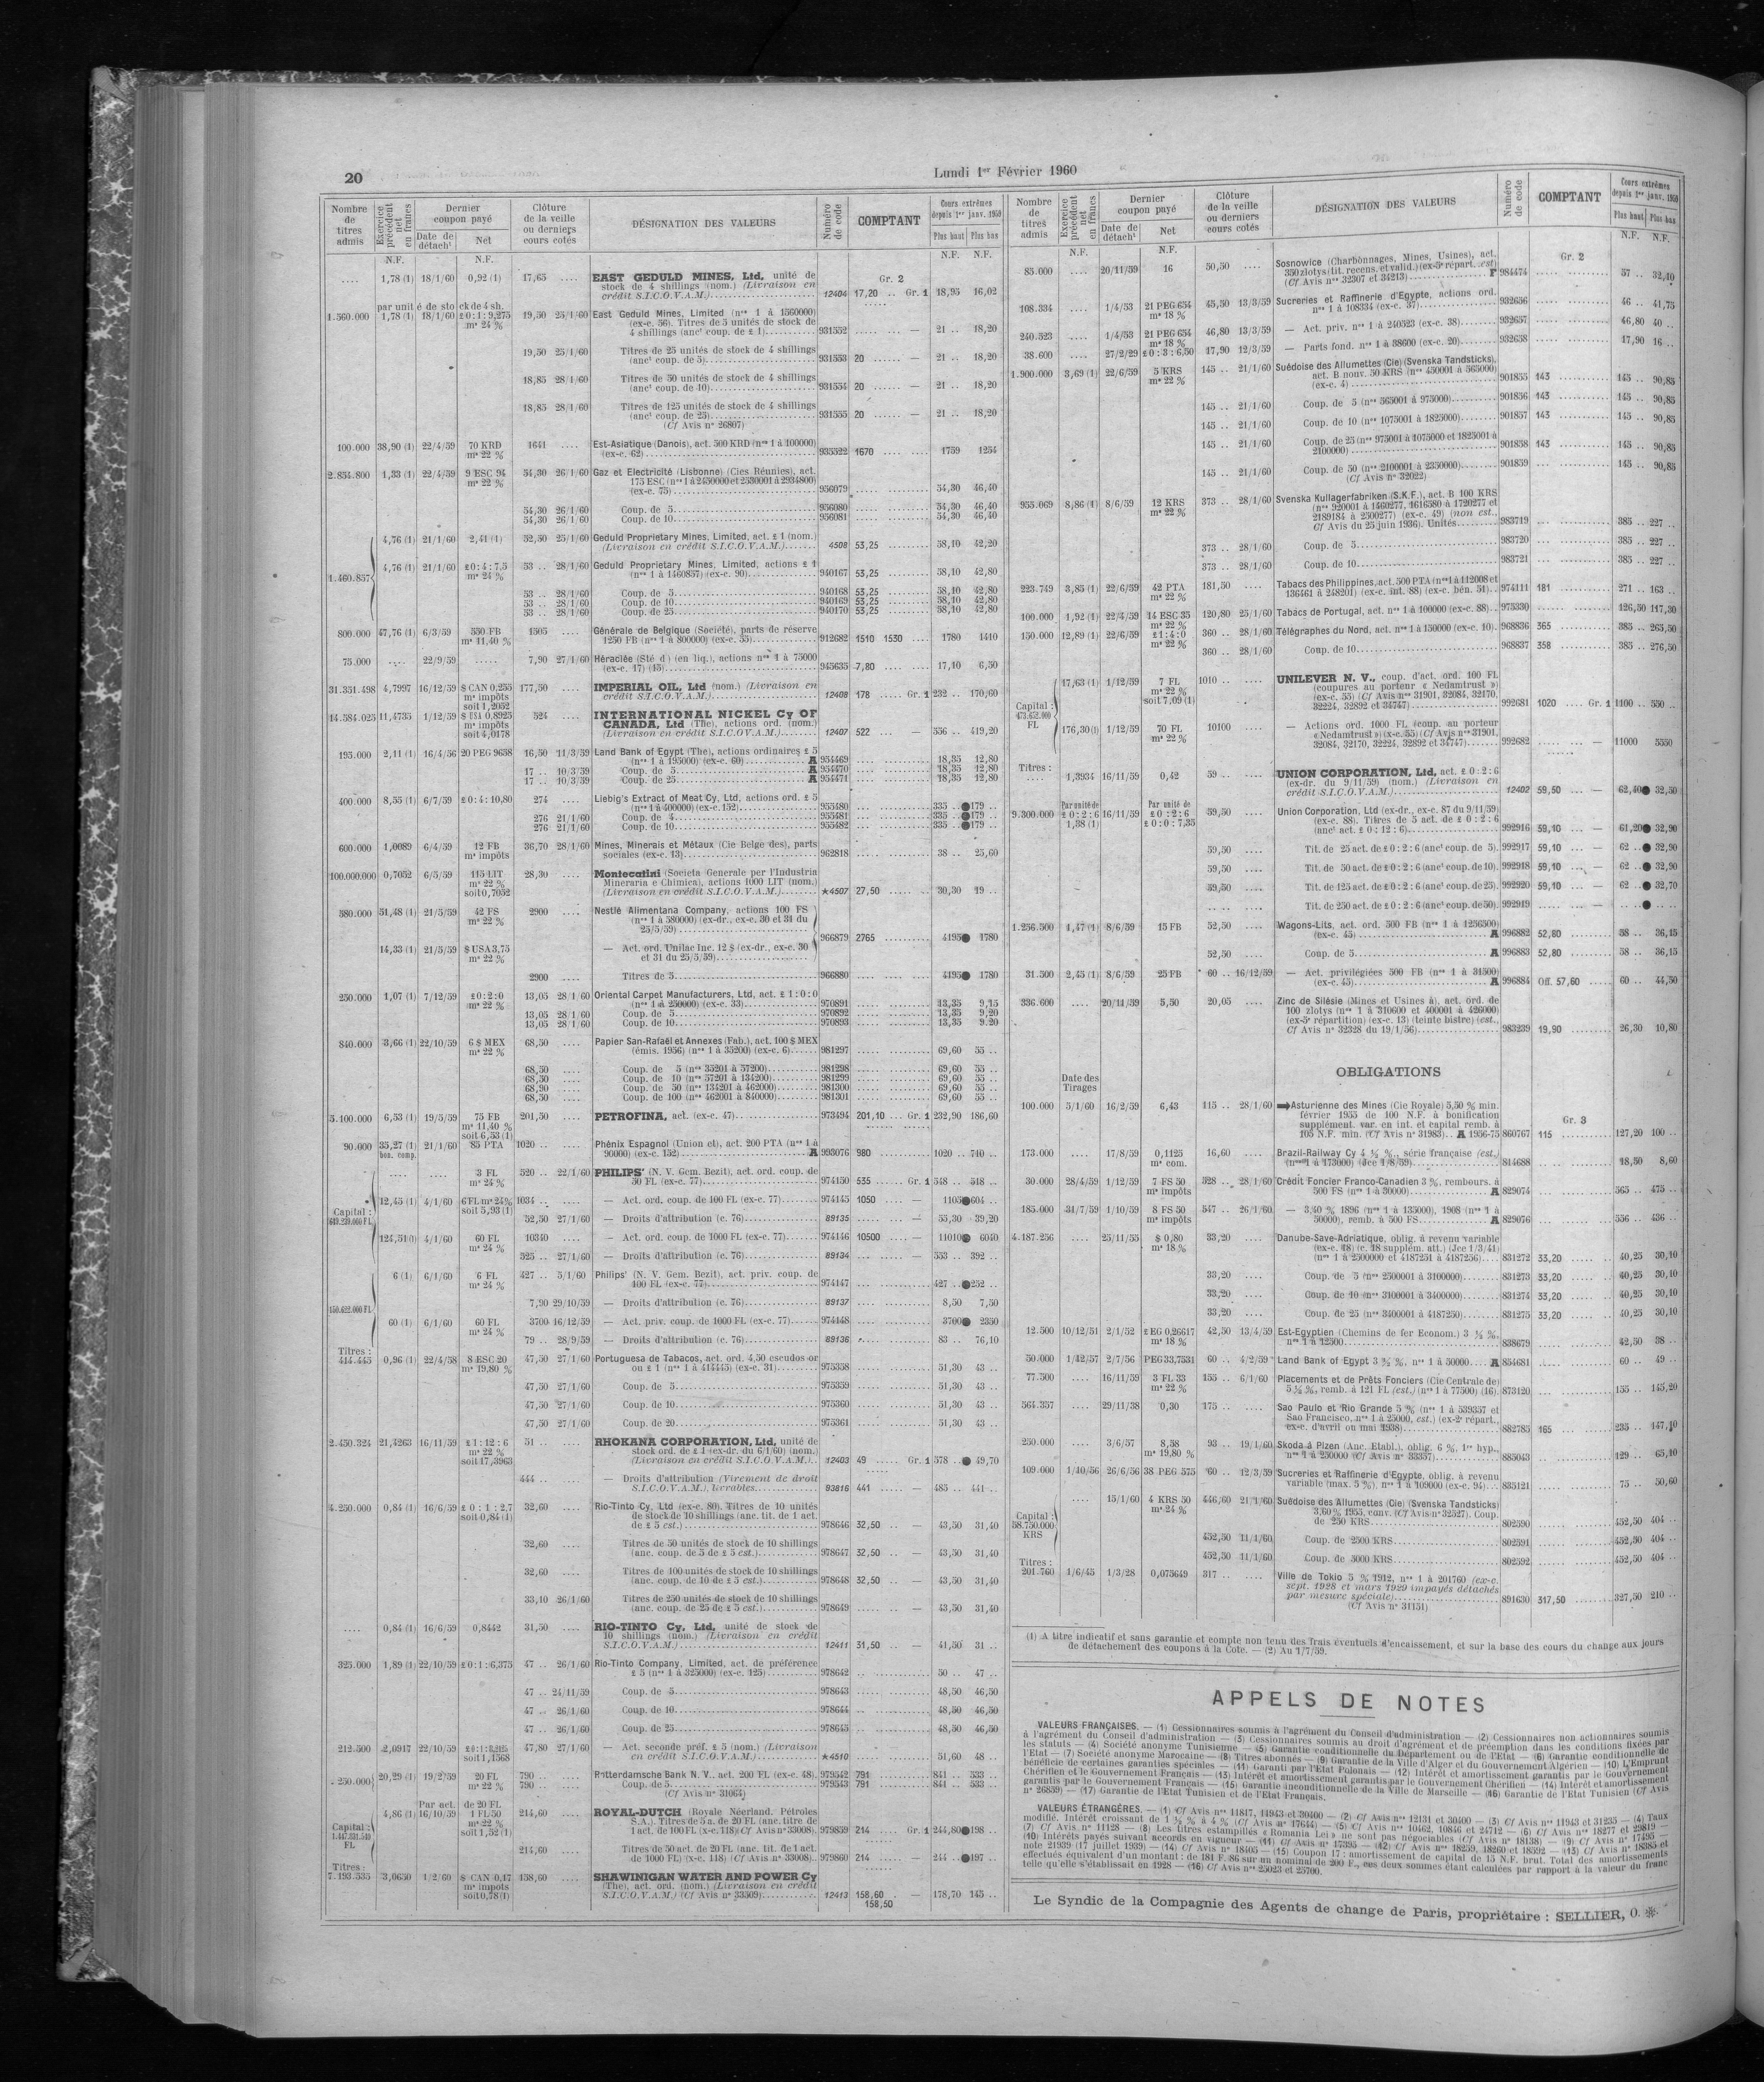 20
Lundi 1er Février 1960
Nombre de titres admis
Exercice précédent net en francs
Dernier coupon payé
Date de détacht
Net
Clôture de la veille ou derniers cours cotés
DÉSIGNATION DES VALEURS
Numéro de code
COMPTANT
Cours extrêmes depuis 1er janv. 1959
Plus haut Plus bas
N.F. N.F. N.F. N.F.
Gr. 2
.... 1,78 (1) 18/1/60 0,92 (1) 17,65 .... EAST GEDULD MINES, Ltd, unité de
stock de 4 shillings (nom.) (Livraison en
crédit S.I.C.O.V.A.M.) 12404 17,20 .. Gr. 1 18,95 16,02
par unité de stock de 4 sh.
1.560.000 1,78 (1) 18/1/60 £0:1:9,275 me 24 % 19,50 25/1/60 East Geduld Mines, Limited (nos 1 à 1560000)
(ex-c. 56). Titres de 5 unités de stock de
4 shillings (anct coup. de £ 1) 931552 ..... ... — 21 .. 18,20
19,50 25/1/60 Titres de 25 unités de stock de 4 shillings
(anct coup. de 5) 931553 20 ...... — 21 .. 18,20
18,85 28/1/60 Titres de 50 unités de stock de 4 shillings
(anct coup. de 10) 931554 20 ...... — 21 .. 18,20
18,85 28/1/60 Titres de 125 unités de stock de 4 shillings
(anct coup. de 25) 931555 20 ...... — 21 .. 18,20
(Cf Avis n° 26807)
100.000 38,90 (1) 22/4/59 70 KRD me 22 % 1641 .... Est-Asiatique (Danois), act. 500 KRD (nos 1 à 100000)
(ex-c. 62) 935522 1670 1759 1254
2.854.800 1,33 (1) 22/4/59 9 ESC 94 me 22 % 54,30 26/1/60 Gaz et Electricité (Lisbonne) (Cies Réunies), act.
175 ESC (nos 1 à 2450000 et 2530001 à 2934800)
(ex-c. 75) 956079 54,30 46,40
54,30 26/1/60 Coup. de 5 956080 54,30 46,40
54,30 26/1/60 Coup. de 10 956081 54,30 46,40
4,76 (1) 21/1/60 2,41 (1) 52,50 25/1/60 Geduld Proprietary Mines, Limited, act. £ 1 (nom.)
(Livraison en crédit S.I.C.O.V.A.M.) 4508 53,25 58,10 42,20
1.460.857 4,76 (1) 21/1/60 £0:4:7,5 me 24 % 53 .. 28/1/60 Geduld Proprietary Mines, Limited, actions £ 1
(nos 1 à 1460857) (ex-c. 90) 940167 53,25 58,10 42,80
53 .. 28/1/60 Coup. de 5 940168 53,25 58,10 42,80
53 .. 28/1/60 Coup. de 10 940169 53,25 58,10 42,80
53 .. 28/1/60 Coup. de 25 940170 53,25 58,10 42,80
800.000 47,76 (1) 6/3/59 550 FB me 11,40 % 1505 .... Générale de Belgique (Société), parts de réserve
1250 FB (nos 1 à 800000) (ex-c. 55) 912682 1510 1530 1780 1410
75.000 .... 22/9/59 ..... 7,90 27/1/60 Héraclée (Sté d') (en liq.), actions nos 1 à 75000
(ex-c. 17) (15) 945635 7,80 17,10 6,50
31.351.498 4,7997 16/12/59 $ CAN 0,255 me impôts soit 1,2052 177,50 .... IMPERIAL OIL, Ltd (nom.) (Livraison en
crédit S.I.C.O.V.A.M.) 12408 178 Gr. 1 232 .. 170,60
14.584.025 11,4735 1/12/59 $ USA 0,8925 me impôts soit 4,0178 524 .... INTERNATIONAL NICKEL Cy OF
CANADA, Ltd (The), actions ord. (nom.)
(Livraison en crédit S.I.C.O.V.A.M.) 12407 522 ... — 556 .. 419,20
195.000 2,11 (1) 16/4/56 20 PEG 9658 16,50 11/3/59 Land Bank of Egypt (The), actions ordinaires £ 5
(nos 1 à 195000) (ex-c. 60) A 954469 18,35 12,80
17 .. 10/3/59 Coup. de 5 A 954470 18,35 12,80
17 .. 10/3/59 Coup. de 25 A 954471 18,35 12,80
400.000 8,55 (1) 6/7/59 £0:4:10,80 274 Liebig's Extract of Meat Cy, Ltd, actions ord. £ 5
(nos 1 à 400000) (ex-c. 152) 955480 335 ..●179 ..
276 21/1/60 Coup. de 4 955481 335 ..●179 ..
276 21/1/60 Coup. de 10 955482 335 ..●179 ..
600.000 1,0089 6/4/59 12 FB me impôts 36,70 28/1/60 Mines, Minerais et Métaux (Cie Belge des), parts
sociales (ex-c. 13) 962818 38 .. 25,60
100.000.000 0,7052 6/5/59 115 LIT me 22 % soit 0,7052 28,30 .... Montecatini (Societa Generale per l'Industria
Mineraria e Chimica), actions 1000 LIT (nom.)
(Livraison en crédit S.I.C.O.V.A.M.) ★4507 27,50 30,30 19 ..
580.000 51,48 (1) 21/5/59 42 FS me 22 % 2900 .... Nestlé Alimentana Company, actions 100 FS
(nos 1 à 580000) (ex-dr., ex-c. 30 et 31 du
25/5/59) 966879 2765 4195● 1780
14,33 (1) 21/5/59 $ USA 3,75 me 22 % — Act. ord. Unilac Inc. 12 $ (ex-dr., ex-c. 30
et 31 du 25/5/59)
2900 .... Titres de 5 966880 4195● 1780
250.000 1,07 (1) 7/12/59 £0:2:0 me 22 % 13,05 28/1/60 Oriental Carpet Manufacturers, Ltd, act. £ 1:0:0
(nos 1 à 250000) (ex-c. 33) 970891 13,35 9,15
13,05 28/1/60 Coup. de 5 970892 13,35 9,20
13,05 28/1/60 Coup. de 10 970893 13,35 9,20
840.000 3,66 (1) 22/10/59 6 $ MEX me 22 % 68,50 .... Papier San-Rafaël et Annexes (Fab.), act. 100 $ MEX
(émis. 1956) (nos 1 à 35200) (ex-c. 6) 981297 69,60 55 ..
68,50 .... Coup. de 5 (nos 35201 à 57200) 981298 69,60 55 ..
68,50 .... Coup. de 10 (nos 57201 à 134200) 981299 69,60 55 ..
68,90 .... Coup. de 50 (nos 134201 à 462000) 981300 69,60 55 ..
68,50 .... Coup. de 100 (nos 462001 à 840000) 981301 69,60 55 ..
5.100.000 6,53 (1) 19/5/59 75 FB me 11,40 % soit 6,53 (1) 201,50 .... PETROFINA, act. (ex-c. 47) 973494 201,10 .. Gr. 1 232,90 186,60
90.000 35,27 (1) bon. comp. 21/1/60 85 PTA 1020 .. Phénix Espagnol (Union et), act. 200 PTA (nos 1 à
90000) (ex-c. 152) A 993076 980 1020 .. 740 ..
.... .... 3 FL me 24 % 520 .. 22/1/60 PHILIPS' (N. V. Gem. Bezit), act. ord. coup. de
50 FL (ex-c. 77) 974150 535 Gr. 1 548 .. 518 ..
Capital : 12,45 (1) 4/1/60 6 FL me 24 % soit 5,93 (1) 1034 .. — Act. ord. coup. de 100 FL (ex-c. 77) 974145 1050 — 1105●604 ..
52,50 27/1/60 — Droits d'attribution (c. 76) 89135 — 55,30 39,20
124,51(1) 4/1/60 60 FL me 24 % 10340 .... — Act. ord. coup. de 1000 FL (ex-c. 77) 974146 10500 — 11010● 6040
525 .. 27/1/60 — Droits d'attribution (c. 76) 89134 — 553 .. 392 ..
6 (1) 6/1/60 6 FL me 24 % 427 .. 5/1/60 Philips' (N. V. Gem. Bezit), act. priv. coup. de
100 FL (ex-c. 77) 974147 427 ..●252 ..
7,90 29/10/59 — Droits d'attribution (c. 76) 89137 8,50 7,50
60 (1) 6/1/60 60 FL me 24 % 3700 16/12/59 — Act. priv. coup. de 1000 FL (ex-c. 77) 974148 3700● 2350
79 .. 28/9/59 — Droits d'attribution (c. 76) 89136 83 .. 76,10
Titres :
414.445 0,96 (1) 22/4/58 8 ESC 20 me 19,80 % 47,50 27/1/60 Portuguesa de Tabacos, act. ord. 4,50 escudos or
ou £ 1 (nos 1 à 414445) (ex-c. 31) 975358 51,30 43 ..
47,50 27/1/60 Coup. de 5 975359 51,30 43 ..
47,50 27/1/60 Coup. de 10 975360 51,30 43 ..
47,50 27/1/60 Coup. de 20 975361 51,30 43 ..
2.450.324 21,4263 16/11/59 £1:12:6 me 22 % soit 17,3963 51 .. RHOKANA CORPORATION, Ltd, unité de
stock ord. de £ 1 (ex-dr. du 6/1/60) (nom.)
(Livraison en crédit S.I.C.O.V.A.M.) 12403 49 Gr. 1 578 ..● 49,70
444 .. — Droits d'attribution (Virement de droit
S.I.C.O.V.A.M.), livrables 93816 441 — 485 .. 441 ..
4.250.000 0,84 (1) 16/6/59 £ 0:1:2,7 soit 0,84 (1) 32,60 .... Rio-Tinto Cy, Ltd (ex-c. 80). Titres de 10 unités
de stock de 10 shillings (anc. tit. de 1 act.
de £ 5 est.) 978646 32,50 — 43,50 31,40
32,60 Titres de 50 unités de stock de 10 shillings
(anc. coup. de 5 de £ 5 est.) 978647 32,50 — 43,50 31,40
32,60 Titres de 100 unités de stock de 10 shillings
(anc. coup. de 10 de £ 5 est.) 978648 32,50 — 43,50 31,40
33,10 26/1/60 Titres de 250 unités de stock de 10 shillings
(anc. coup. de 25 de £ 5 est.) 978649 — 43,50 31,40
.... 0,84 (1) 16/6/59 0,8442 31,50 .... RIO-TINTO Cy, Ltd, unité de stock de
10 shillings (nom.) (Livraison en crédit
S.I.C.O.V.A.M.) 12411 31,50 — 41,50 31 ..
325.000 1,89 (1) 22/10/59 £0:1:6,375 47 .. 26/1/60 Rio-Tinto Company, Limited, act. de préférence
£ 5 (nos 1 à 325000) (ex-c. 125) 978642 50 .. 47 ..
47 .. 24/11/59 Coup. de 5 978643 48,50 46,50
47 .. 26/1/60 Coup. de 10 978644 48,50 46,50
47 .. 26/1/60 Coup. de 25 978645 48,50 46,50
212.500 2,0917 22/10/59 soit 1,1568 47,80 27/1/60 — Act. seconde préf. £ 5 (nom.) (Livraison
en crédit S.I.C.O.V.A.M.) ★4510 51,60 48 ..
250.000 20,29 (1) 19/2/59 20 FL me 22 % 790 .. Rotterdamsche Bank N. V., act. 200 FL (ex-c. 48) 979542 791 841 .. 533 ..
790 .. Coup. de 5 979543 791 841 .. 533 ..
(Cf Avis n° 31064)
Par act. de 20 FL
Capital : 1.447.531.540 FL 4,86 (1) 16/10/59 1 FL 50 me 22 % soit 1,52 (1) 214,60 ROYAL-DUTCH (Royale Néerland. Pétroles
S.A.). Titres de 5 a. de 20 FL (anc. titre de
1 act. de 100 FL) (x-c. 118) (Cf Avis n° 33008) 979859 214 Gr. 1 244,80●198 ..
214,60 Titres de 50 act. de 20 FL (anc. tit. de 1 act.
de 1000 FL) (x-c. 118) (Cf Avis n° 33008) 979860 214 — 244 ..●197 ..
Titres :
7.193.535 3,0650 1/2/60 $ CAN 0,17 me impôts soit 0,78 (1) 158,60 SHAWINIGAN WATER AND POWER Cy
(The), act. ord. (nom.) (Livraison en crédit
S.I.C.O.V.A.M.) (Cf Avis n° 33509) 12413 158,60 — 178,70 145 ..
158,50
Nombre de titres admis
Exercice précédent net en francs
Dernier coupon payé
Date de détacht
Net
Clôture de la veille ou derniers cours cotés
DÉSIGNATION DES VALEURS
Numéro de code
COMPTANT
Cours extrêmes depuis 1er janv. 1959
Plus haut Plus bas
N.F. N.F. N.F.
Gr. 2
85.000 .... 20/11/59 16 50,50 .... Sosnowice (Charbonnages, Mines, Usines), act.
350 zlotys (tit. recens. et valid.) (ex-5e répart. est)
(Cf Avis nos 32307 et 34213) F 984474 57 .. 32,10
108.334 .... 1/4/53 21 PEG 654 me 18 % 45,50 13/3/59 Sucreries et Raffinerie d'Egypte, actions ord.
nos 1 à 108334 (ex-c. 37) 932656 46 .. 41,75
240.523 1/4/53 21 PEG 654 me 18 % 46,80 13/3/59 — Act. priv. nos 1 à 240523 (ex-c. 38) 932657 46,80 40 ..
38.600 .... 27/2/29 £0:3:6,50 17,90 12/3/59 — Parts fond. nos 1 à 38600 (ex-c. 20) 932658 17,90 16 ..
1.900.000 3,69 (1) 22/6/59 5 KRS me 22 % 145 .. 21/1/60 Suédoise des Allumettes (Cie) (Svenska Tandsticks),
act. B nouv. 50 KRS (nos 450001 à 565000)
(ex-c. 4) 901855 143 145 .. 90,85
145 .. 21/1/60 Coup. de 5 (nos 565001 à 975000) 901856 143 145 .. 90,85
145 .. 21/1/60 Coup. de 10 (nos 1075001 à 1825000) 901857 143 145 .. 90,85
145 .. 21/1/60 Coup. de 25 (nos 975001 à 1075000 et 1825001 à
2100000) 901858 143 145 .. 90,85
145 .. 21/1/60 Coup. de 50 (nos 2100001 à 2350000) 901859 145 .. 90,85
(Cf Avis n° 32022)
955.069 8,86 (1) 8/6/59 12 KRS me 22 % 373 .. 28/1/60 Svenska Kullagerfabriken (S.K.F.), act. B 100 KRS
(nos 920001 à 1460277, 1616580 à 1720277 et
2189184 à 2500277) (ex-c. 49) (non est.,
Cf Avis du 25 juin 1936). Unités 983719 385 .. 227 ..
373 .. 28/1/60 Coup. de 5 983720 385 .. 227 ..
373 .. 28/1/60 Coup. de 10 983721 385 .. 227 ..
223.749 3,85 (1) 22/6/59 42 PTA me 22 % 181,50 .... Tabacs des Philippines, act. 500 PTA (nos 1 à 112008 et
136461 à 248201) (ex-c. int. 88) (ex-c. bén. 51) 974111 181 271 .. 163 ..
100.000 1,92 (1) 22/4/59 14 ESC 35 me 22 % 120,80 25/1/60 Tabacs de Portugal, act. nos 1 à 100000 (ex-c. 88) 975330 126,50 117,30
150.000 12,89 (1) 22/6/59 £1:4:0 me 22 % 360 .. 28/1/60 Télégraphes du Nord, act. nos 1 à 150000 (ex-c. 10) 968836 365 385 .. 263,50
360 .. 28/1/60 Coup. de 10 968837 358 385 .. 276,50
17,63 (1) 1/12/59 7 FL me 22 % soit 7,09 (1) 1010 .. UNILEVER N. V., coup. d'act. ord. 100 FL
(coupures au porteur « Nedamtrust »)
(ex-c. 55) (Cf Avis nos 31901, 32084, 32170,
32224, 32892 et 34747) 992681 1020 Gr. 1 1100 .. 550 ..
Capital : FL 176,30(1) 1/12/59 70 FL me 22 % 10100 — Actions ord. 1000 FL (coup. au porteur
« Nedamtrust ») (x-c. 55) (Cf Avis nos 31901,
32084, 32170, 32224, 32892 et 34747) 992682 — 11000 5550
Titres :
.... 1,3934 16/11/59 0,42 59 .. UNION CORPORATION, Ltd, act. £ 0:2:6
(ex-dr. du 9/11/59) (nom.) (Livraison en
crédit S.I.C.O.V.A.M.) 12402 59,50 — 62,40● 32,50
9.300.000 Par unité de £ 0:2:6 1,38 (1) 16/11/59 Par unité de £ 0:2:6 £ 0:0:7,35 59,50 Union Corporation, Ltd (ex-dr., ex-c. 87 du 9/11/59)
(ex-c. 88). Titres de 5 act. de £ 0:2:6
(anct act. £ 0:12:6) 992916 59,10 — 61,20● 32,90
59,50 Tit. de 25 act. de £ 0:2:6 (anct coup. de 5) 992917 59,10 — 62 ..● 32,90
59,50 Tit. de 50 act. de £ 0:2:6 (anct coup. de 10) 992918 59,10 — 62 ..● 32,90
59,50 Tit. de 125 act. de £ 0:2:6 (anct coup. de 25) 992920 59,10 — 62 ..● 32,70
Tit. de 250 act. de £ 0:2:6 (anct coup. de 50) 992919 — ...●....
1.256.500 1,47 (1) 8/6/59 15 FB 52,50 Wagons-Lits, act. ord. 500 FB (nos 1 à 1256500)
(ex-c. 45) A 996882 52,80 58 .. 36,15
52,50 Coup. de 5 A 996883 52,80 58 .. 36,15
31.500 2,45 (1) 8/6/59 25 FB 60 .. 16/12/59 — Act. privilégiées 500 FB (nos 1 à 31500)
(ex-c. 45) A 996884 Off. 57,60 60 .. 44,50
336.600 .... 20/11/59 5,50 20,05 .... Zinc de Silésie (Mines et Usines à), act. ord. de
100 zlotys (nos 1 à 310600 et 400001 à 426000)
(ex-5e répartition) (ex-c. 13) (teinte bistre) (est.,
Cf Avis n° 32328 du 19/1/56) 983239 19,90 26,30 10,80
Date des Tirages
OBLIGATIONS
Gr. 3
100.000 5/1/60 16/2/59 6,43 115 .. 28/1/60 Asturienne des Mines (Cie Royale) 5,50 % min.
février 1955 de 100 N.F. à bonification
supplément. var. en int. et capital remb. à
105 N.F. min. (Cf Avis n° 31983) A 1956-75 860767 115 127,20 100 ..
173.000 .... 17/8/59 0,1125 me com. 16,60 Brazil-Railway Cy 4 ½ %, série française (est.)
(nos 1 à 173000) (Jce 1/8/59) 814688 18,50 8,60
30.000 28/4/59 1/12/59 7 FS 50 me impôts 528 .. 28/1/60 Crédit Foncier Franco-Canadien 3 %, rembours. à
500 FS (nos 1 à 30000) A 829074 565 .. 475 ..
185.000 31/7/59 1/10/59 8 FS 50 me impôts 547 .. 26/1/60 — 3,40 % 1896 (nos 1 à 135000), 1908 (nos 1 à
50000), remb. à 500 FS A 829076 556 .. 436 ..
4.187.256 .... 25/11/55 $ 0,80 me 18 % 33,20 Danube-Save-Adriatique, oblig. à revenu variable
(ex-c. 18) (c. 18 supplém. att.) (Jce 1/3/41)
(nos 1 à 2500000 et 4187251 à 4187256) 831272 33,20 40,25 30,10
33,20 Coup. de 5 (nos 2500001 à 3100000) 831273 33,20 40,25 30,10
33,20 Coup. de 10 (nos 3100001 à 3400000) 831274 33,20 40,25 30,10
33,20 Coup. de 25 (nos 3400001 à 4187250) 831275 33,20 40,25 30,10
12.500 10/12/51 2/1/52 £EG 0,26617 me 18 % 42,50 13/4/59 Est-Egyptien (Chemins de fer Econom.) 3 ½ %,
nos 1 à 12500 838679 42,50 38 ..
50.000 1/12/57 2/7/56 PEG 33,7531 60 .. 4/2/59 Land Bank of Egypt 3 ½ %, nos 1 à 50000 A 854681 60 .. 49 ..
77.500 .... 16/11/59 3 FL 33 me 22 % 155 .. 6/1/60 Placements et de Prêts Fonciers (Cie Centrale de)
5 ½ %, remb. à 121 FL (est.) (nos 1 à 77500) (16) 873120 155 .. 145,20
564.357 .... 29/11/38 0,30 175 .. Sao Paulo et Rio Grande 5 % (nos 1 à 539357 et
Sao Francisco, nos 1 à 25000, est.) (ex-2e répart.,
ex-c. d'avril ou mai 1938) 882785 165 235 .. 147,10
250.000 3/6/57 8,58 me 19,80 % 93 .. 19/1/60 Skoda à Plzen (Anc. Etabl.), oblig. 6 %, 1re hyp.,
nos 1 à 250000 (Cf Avis n° 33357) 885043 129 .. 65,10
109.000 1/10/56 26/6/56 38 PEG 575 60 .. 12/3/59 Sucreries et Raffinerie d'Egypte, oblig. à revenu
variable (max. 5 %), nos 1 à 109000 (ex-c. 94) 835121 75 .. 50,60
Capital : 58.750.000 KRS .... 15/1/60 4 KRS 50 me 24 % 446,60 21/1/60 Suédoise des Allumettes (Cie) (Svenska Tandsticks)
3,60 % 1955, conv. (Cf Avis n° 32527). Coup.
de 250 KRS 802590 452,50 404 ..
452,50 11/1/60 Coup. de 2500 KRS 802591 452,50 404 ..
452,50 11/1/60 Coup. de 5000 KRS 802592 452,50 404 ..
Titres :
201.760 1/6/45 1/3/28 0,075649 317 .. Ville de Tokio 5 % 1912, nos 1 à 201760 (ex-c.
sept. 1928 et mars 1929 impayés détachés
par mesure spéciale) 891630 317,50 327,50 210 ..
(Cf Avis n° 31151)
(1) A titre indicatif et sans garantie et compte non tenu des frais éventuels d'encaissement, et sur la base des cours du change aux jours
de détachement des coupons à la Cote. — (2) Au 1/7/59.
APPELS DE NOTES
VALEURS FRANÇAISES. — (1) Cessionnaires soumis à l'agrément du Conseil d'administration — (2) Cessionnaires non actionnaires soumis
à l'agrément du Conseil d'administration — (3) Cessionnaires soumis au droit d'agrément et de préemption dans les conditions fixées par
les statuts — (4) Société anonyme Tunisienne — (5) Garantie conditionnelle du Département ou de l'Etat — (6) Garantie conditionnelle de
l'Etat — (7) Société anonyme Marocaine — (8) Titres abonnés — (9) Garantie de la Ville d'Alger et du Gouvernement Algérien — (10) L'Emprunt
bénéficie de certaines garanties spéciales — (11) Garanti par l'Etat Polonais — (12) Intérêt et amortissement garantis par le Gouvernement
Chérifien et le Gouvernement Français — (13) Intérêt et amortissement garantis par le Gouvernement Chérifien — (14) Intérêt et amortissement
garantis par le Gouvernement Français — (15) Garantie inconditionnelle de la Ville de Marseille — (16) Garantie de l'Etat Tunisien (Cf Avis
n° 26839) — (17) Garantie de l'Etat Tunisien et de l'Etat Français.
VALEURS ÉTRANGÈRES. — (1) Cf Avis nos 11817, 11943 et 30400 — (2) Cf Avis nos 12131 et 30400 — (3) Cf Avis nos 11943 et 31235 — (4) Taux
modifié. Intérêt croissant de 1 ½ % à 4 % (Cf Avis n° 17644) — (5) Cf Avis nos 10462, 10846 et 24712 — (6) Cf Avis nos 18277 et 29819 —
(7) Cf Avis n° 11128 — (8) Les titres estampillés « Romania Lei » ne sont pas négociables (Cf Avis n° 18138) — (9) Cf Avis n° 17495 —
(10) Intérêts payés suivant accords en vigueur — (11) Cf Avis n° 17395 — (12) Cf Avis nos 18259, 18260 et 18592 — (13) Cf Avis n° 18385 et
note 21939 (17 juillet 1939) — (14) Cf Avis n° 18405 — (15) Coupon 17 : amortissement de capital de 15 N.F. brut. Total des amortissements
effectués équivalent d'un montant : de 181 F. 86 sur un nominal de 200 F., ces deux sommes étant calculées par rapport à la valeur du franc
telle qu'elle s'établissait en 1928 — (16) Cf Avis nos 25023 et 25700.
Le Syndic de la Compagnie des Agents de change de Paris, propriétaire : SELLIER, O. ※